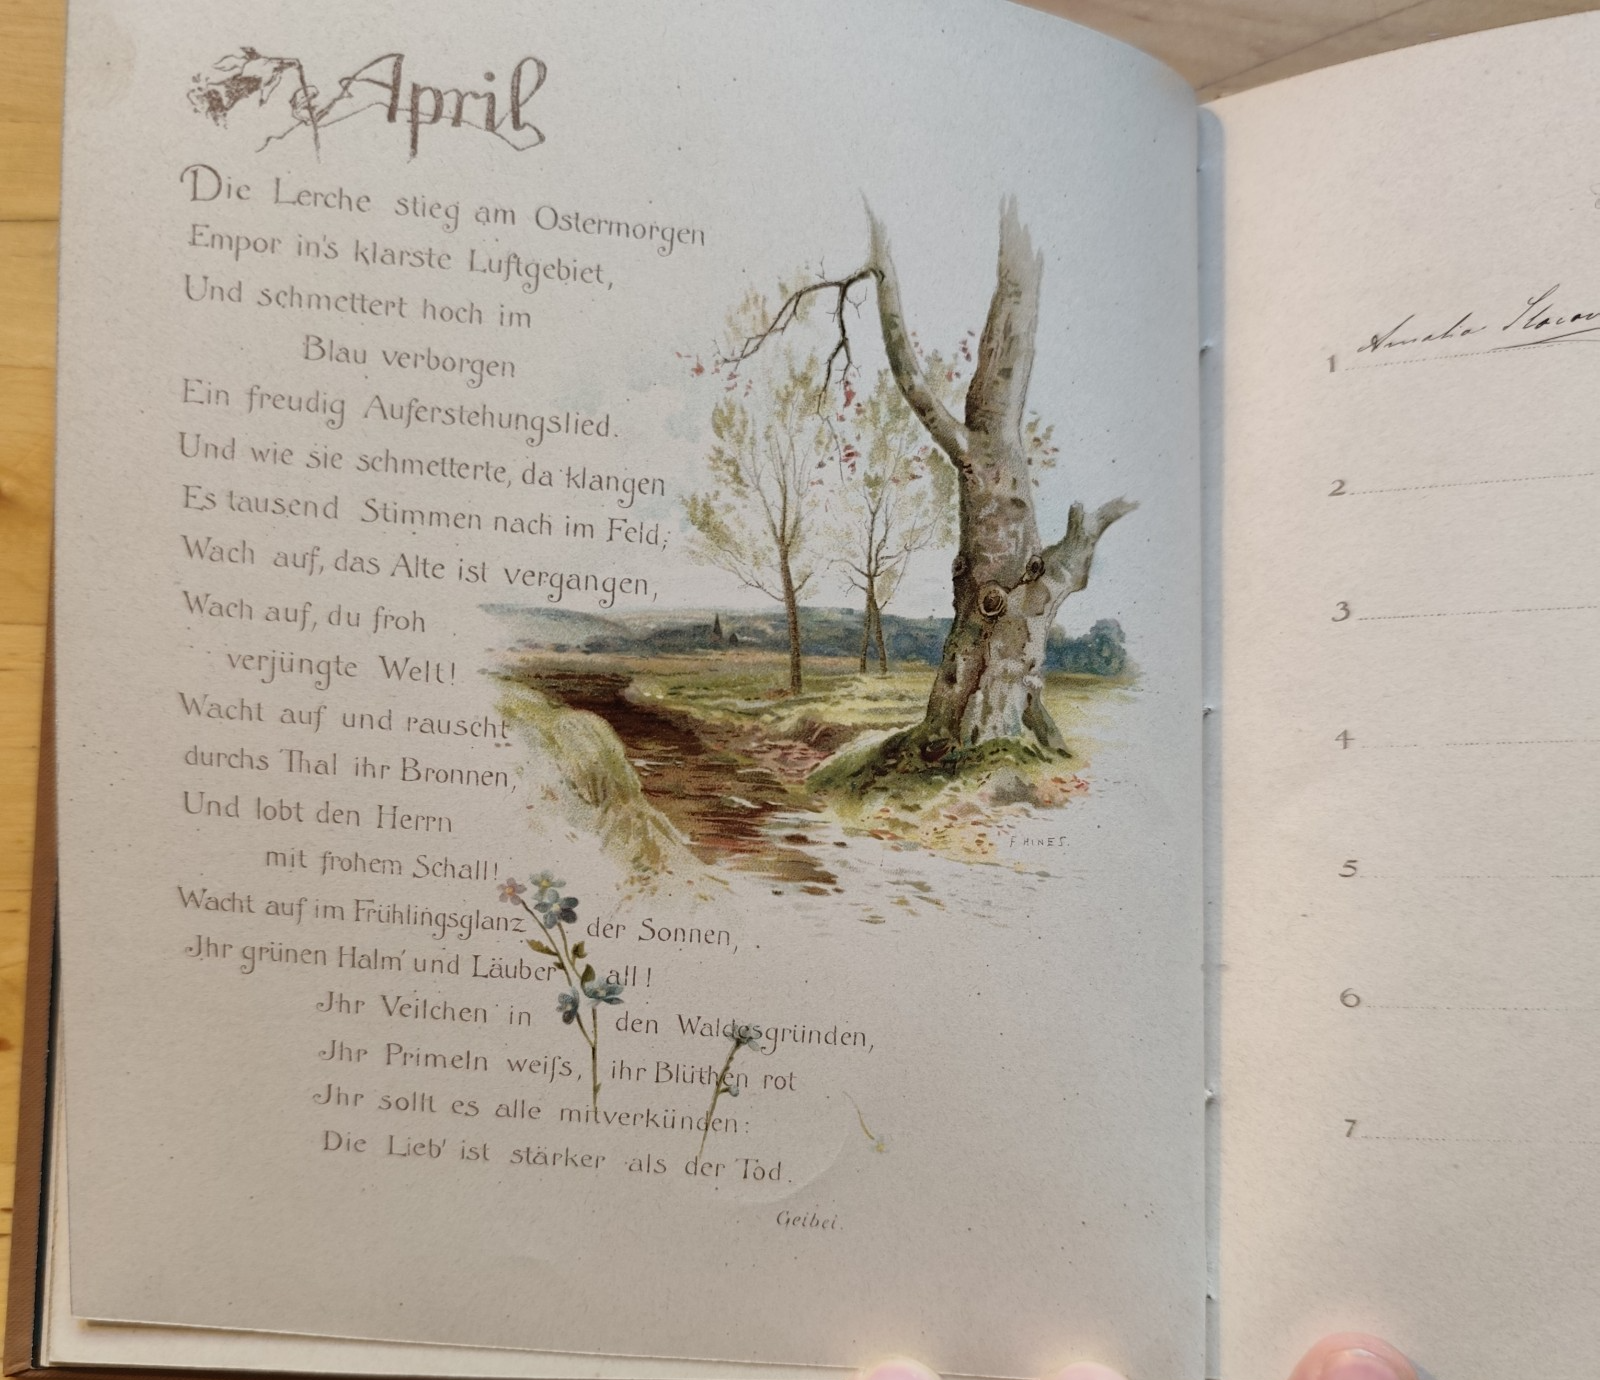 April
Die Lerche stieg am Ostermorgen
Empor in's klarste Luftgebiet,
Und schmettert hoch im
Blau verborgen
Ein freudig Auferstehungslied.
Und wie sie schmetterte, da klangen
Es tausend Stimmen nach im Feld;
Wach auf, das Alte ist vergangen,
Wach auf, du froh
verjüngte Welt!
Wacht auf und rauscht
durchs Thal ihr Bronnen,
Und lobt den Herrn
mit frohem Schall!
Wacht auf im Frühlingsglanz der Sonnen,
Ihr grünen Halm' und Läuber all!
Ihr Veilchen in den Waldesgründen,
Ihr Primeln weiſs, ihr Blüthen rot
Ihr sollt es alle mitverkünden:
Die Lieb' ist stärker als der Tod.
Geibel.
F HINES.
1
2
3
4
5
6
7